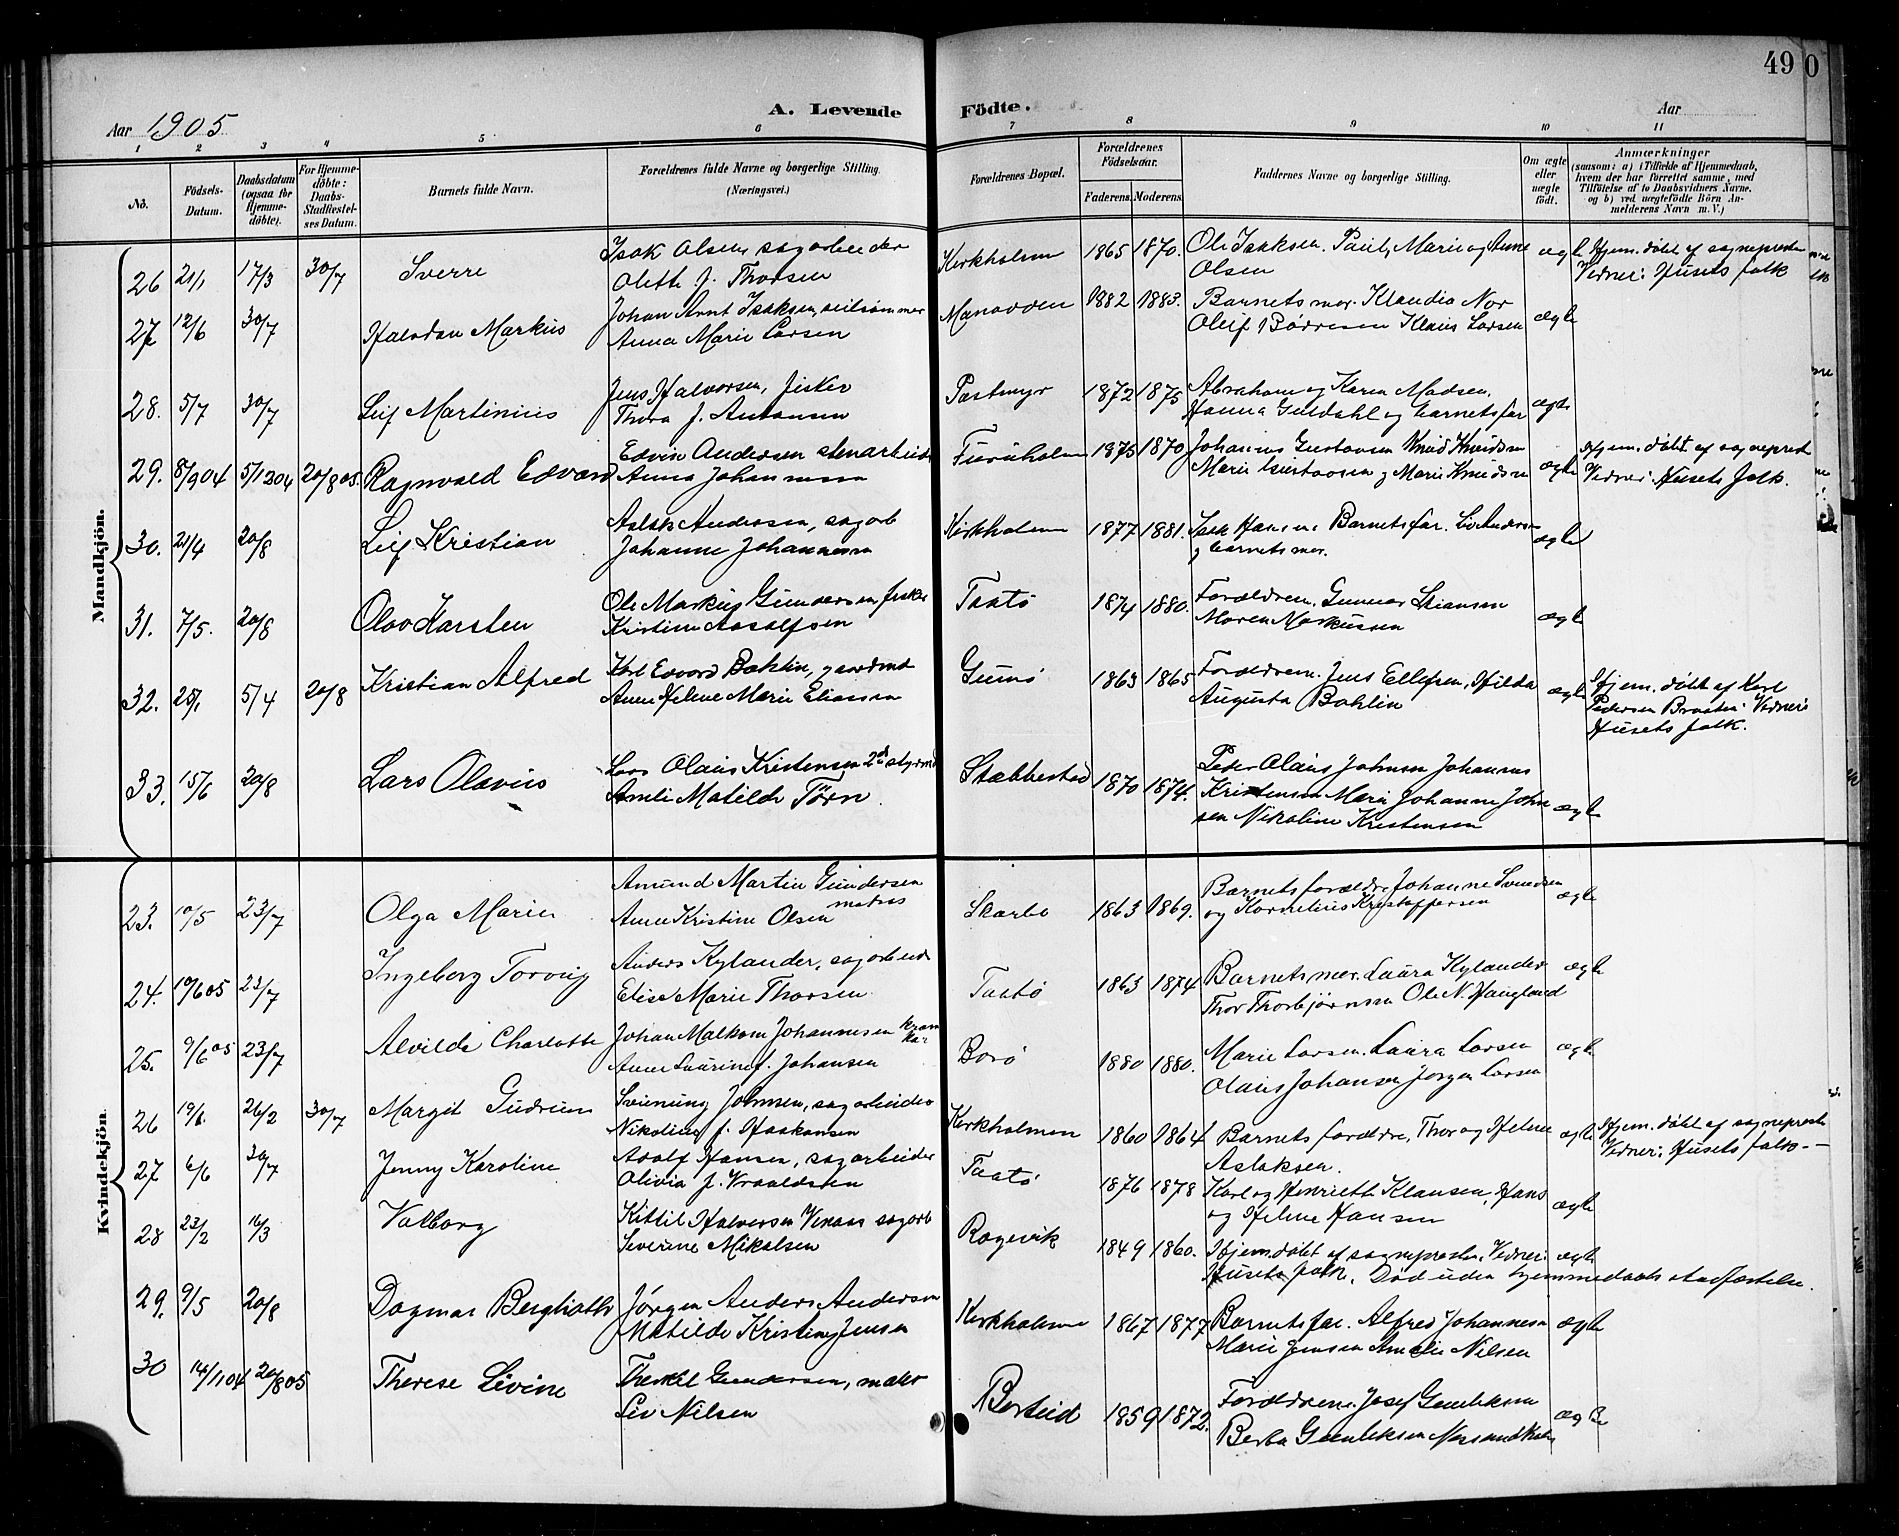 49
0
Aar 1905
A. Levende
Födte.
Aar
1 2 3 4 5 6 7 8 9 10 11
No.
Födsels-Datum.
Daabsdatum (ogsaa for Hjemme-döbte).
For Hjemme-döbte: Daabs-Stadfæstel-ses Datum.
Barnets fulde Navn.
Forældrenes fulde Navne og borgerlige Stilling. (Næringsvei.)
Forældrenes Bopæl.
Forældrenes Födselsaar.
Faderens. Moderens.
Faddernes Navne og borgerlige Stilling.
Om ægte eller uægte födt.
Anmærkninger
(saasom: a) i Tilfælde af Hjemmedaab,
hvem der har forrettet samme, med
Tilföielse af to Daabsvidners Navne.
og b) ved uægtefödte Börn An-
melderens Navn m. V.)
Mandkjön.
26 21/1 17/3 30/7 Sverre Isak Olsen, sagarbeider Kirkholmen 1865 1870. Ole Isaksen. Paul, Marie og Anne ægte Hjem. døbt af sognepresten
Oleth J. Thorsen Olsen Vidner: Husets folk
27 12/6 30/7 Halvdan Markus Johan Arnt Isaksen, seilsømmer 1882 1883. Barnets mor. Klaudia Nor ægte
Anna Marie Larsen Oleif Børresen Klaus Larsen
28. 5/7 30/7 Leif Martinius Jens Halvorsen, fisker Pastmyr 1872 1875 Abraham og Karen Madsen, ægte
Thora J. Antonsen Hanna Guldahl og barnets far
29. 8/904 5/1204 20/8 05. Ragnvald Edvard Edvin Andersen stenarbeid Furuholmen 1875 1870 Johannes Gustavsen Knud Knudsen ægte Hjem. døbt af sogneprest
Anna Johannessen Marie Gustavsen og Marie Knudsen Vidner: Husets folk.
30. 21/4 20/8 Leif Kristian Aslak Andersen, sagarb Kirkholmen 1877 1881. Isak Hansen Barnets far. Liv Andersen ægte
Johanne Johannessen og barnets mor.
31. 7/5. 20/8 Olav Karsten Ole Markus Gundersen fisker Taatø 1874 1880. Forældrene. Gunnar Stiansen ægte
Kristine Aadalfsen Maren Markussen
32. 25/1 5/4 20/8 Kristian Alfred Karl Edvard Bohlin, gaardmd Gumø 1863 1865 Forældrene. Jens Ellefsen, Hilda ægte Hjem. døbt af Karl
Anne Helene Marie Eliassen Augusta Bohlin Pedersen Braaten Vidner:
Husets folk.
33. 15/6 20/8 Lars Olavius Lars Olaus Kristensen 2den styrmd Stabbestad 1870 1874. Peder Olaus Johnsen Johannes
Amli Matilde Törn Kristensen Marie Johanne John ægte
sen Nikoline Kristensen
Kvindekjön.
23. 10/5 23/7 Olga Marie Amund Martin Gundersen matros Skarbo 1863 1869. Barnets forældre Johanne Svendsen ægte
Anne Kristine Olsen og Kornelius Kristoffersen
24. 19/605 23/7 Ingeborg Torvig Anders Kylander, sagarbeid Taatø 1863 1874 Barnets mor. Laura Kylander ægte
Elise Marie Thorsen Thor Thorbjørnsen Ole N. Haugland
25. 9/6 05 23/7 Alvilde Charlotte Johan Malkom Johannesen Borø 1880 1880. Marie Larsen. Laura Larsen ægte
Anne Laurine f. Johansen Olaus Johansen Jørgen Larsen
26 19/1. 26/2 30/7 Margit Gudrun Sveinung Johnsen, sagarbeider Kirkholmen 1860 1864 Barnets forældre, Thor og Helene ægte Hjem. døbt af sogneprest
Nikoline f. Haakonsen Aslaksen. Vidner: Husets folk. —
27 6/6 30/7 Jenny Karoline Adolf Hansen, sagarbeider Taatø 1876 1878 Karl og Henriette Klausen, Hans ægte
Olivia J. Vraaldsten og Helene Hansen
28 23/2 16/3 Valborg Kittil Halvorsen sagarb Rogevik 1849 1860. Hjem. døbt af sognepresten. Vidner: ægte
Severine Mikalsen Husets folk. Død uden hjemmedaabs stadfæstelse.
29. 9/5 20/8 Dagmar Bergliotte Jørgen Anders Andersen Kirkholmen 1867 1877 Barnets far. Alfred Johannesen ægte
Matilde Kristine Jensen Marie Jensen Amalie Nilsen
30 14/1104 20/805 Therese Livine Therkil Gundersen, maler Berteid 1859 1872. Forældrene. Josef Gundersen ægte
Liv Nilsen